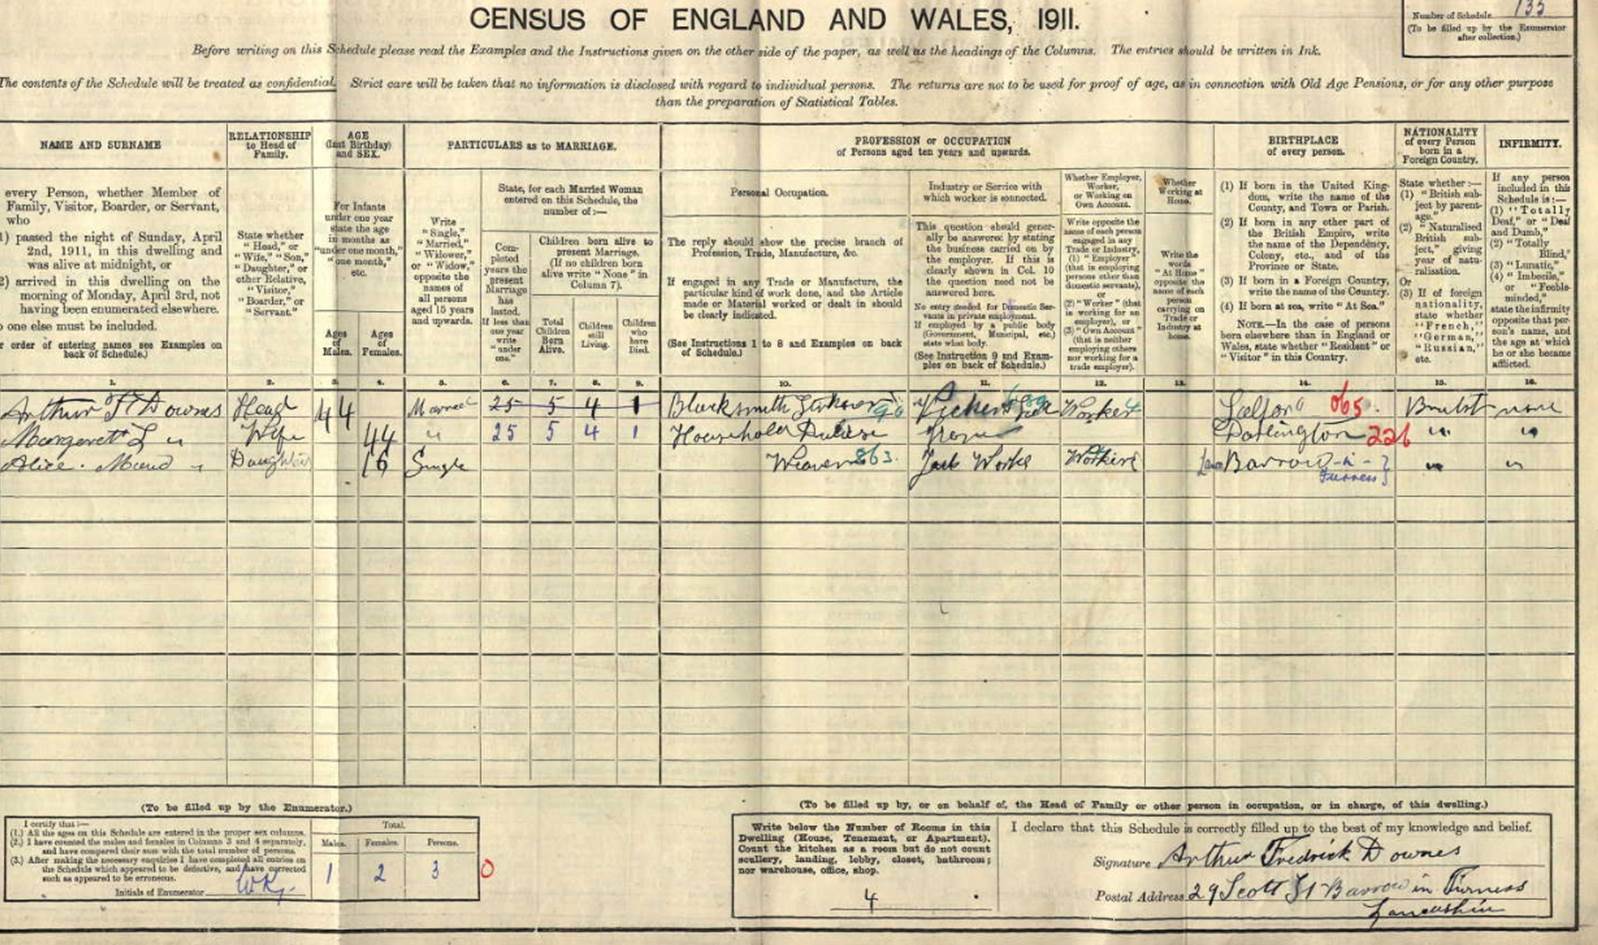 CENSUS OF ENGLAND AND WALES, 1911.
Number of Schedule 135
(To be filled up by the Enumerator
after collection.)
Before writing on this Schedule please read the Examples and the Instructions given on the other side of the paper, as well as the headings of the Columns. The entries should be written in Ink.
The contents of the Schedule will be treated as confidential. Strict care will be taken that no information is disclosed with regard to individual persons. The returns are not to be used for proof of age, as in connection with Old Age Pensions, or for any other purpose
than the preparation of Statistical Tables.
NAME AND SURNAME
every Person, whether Member of
Family, Visitor, Boarder, or Servant,
who
1) passed the night of Sunday, April
2nd, 1911, in this dwelling and
was alive at midnight, or
2) arrived in this dwelling on the
morning of Monday, April 3rd, not
having been enumerated elsewhere.
one else must be included.
order of entering names see Examples on
back of Schedule.)
RELATIONSHIP
to Head of
Family.
State whether
"Head," or
"Wife," "Son,"
"Daughter," or
other Relative,
"Visitor,"
"Boarder," or
"Servant."
AGE
(last Birthday)
and SEX.
For Infants
under one year
state the age
in months as
"under one month,"
"one month,"
etc.
Ages
of
Males.
Ages
of
Females.
PARTICULARS as to MARRIAGE.
Write
"Single,"
"Married,"
"Widower,"
or "Widow,"
opposite the
names of
all persons
aged 15 years
and upwards.
State, for each Married Woman
entered on this Schedule, the
number of:—
Com-
pleted
years the
present
Marriage
has
lasted.
If less than
one year
write
"under
one."
Children born alive to
present Marriage.
(If no children born
alive write "None" in
Column 7).
Total
Children
Born
Alive.
Children
still
Living.
Children
who
have
Died.
PROFESSION or OCCUPATION
of Persons aged ten years and upwards.
Personal Occupation.
The reply should show the precise branch of
Profession, Trade, Manufacture, &c.
If engaged in any Trade or Manufacture, the
particular kind of work done, and the Article
made or Material worked or dealt in should
be clearly indicated.
(See Instructions 1 to 8 and Examples on back
of Schedule.)
Industry or Service with
which worker is connected.
This question should gener-
ally be answered by stating
the business carried on by
the employer. If this is
clearly shown in Col. 10
the question need not be
answered here.
No entry needed for Domestic Ser-
vants in private employment.
If employed by a public body
(Government, Municipal, etc.)
state what body.
(See Instruction 9 and Exam-
ples on back of Schedule.)
Whether Employer,
Worker,
or Working on
Own Account.
Write opposite the
name of each person
engaged in any
Trade or Industry,
(1) "Employer"
(that is employing
persons other than
domestic servants),
or
(2) "Worker" (that
is working for an
employer), or
(3) "Own Account"
(that is neither
employing others
nor working for a
trade employer).
Whether
Working at
Home.
Write the
words
"At Home"
opposite the
name of each
person
carrying on
Trade or
Industry at
home.
BIRTHPLACE
of every person.
(1) If born in the United King-
dom, write the name of the
County, and Town or Parish.
(2) If born in any other part of
the British Empire, write
the name of the Dependency,
Colony, etc., and of the
Province or State.
(3) If born in a Foreign Country,
write the name of the Country.
(4) If born at sea, write "At Sea."
NOTE.—In the case of persons
born elsewhere than in England or
Wales, state whether "Resident" or
"Visitor" in this Country.
NATIONALITY
of every Person
born in a
Foreign Country.
State whether:—
(1) "British sub-
ject by parent-
age."
(2) "Naturalised
British sub-
ject," giving
year of natu-
ralisation.
Or
(3) If of foreign
nationality,
state whether
"French,"
"German,"
"Russian,"
etc.
INFIRMITY.
If any person
included in this
Schedule is:—
(1) "Totally
Deaf," or "Deaf
and Dumb,"
(2) "Totally
Blind,"
(3) "Lunatic,"
(4) "Imbecile,"
or "Feeble-
minded,"
state the infirmity
opposite that per-
son's name, and
the age at which
he or she became
afflicted.
1. 2. 3. 4. 5. 6. 7. 8. 9. 10. 11. 12. 13. 14. 15. 16.
Arthur F Downes Head 44 Married 25 5 4 1 Blacksmith 90 Vickers Worker Salford 065. none
Margaret L " Wife 44 " 25 5 4 1 Household Duties None Darlington 226 " "
Alice. Maud " Daughter 16 Single Weaver 863. Jute Works Worker Barrow-in-Furness " "
(To be filled up by the Enumerator.)
I certify that:—
(1.) All the ages on this Schedule are entered in the proper sex columns.
(2.) I have counted the males and females in Columns 3 and 4 separately,
and have compared their sum with the total number of persons.
(3.) After making the necessary enquiries I have completed all entries on
the Schedule which appeared to be defective, and have corrected
such as appeared to be erroneous.
Initials of Enumerator
Total.
Males. Females. Persons.
1 2 3 0
(To be filled up by, or on behalf of, the Head of Family or other person in occupation, or in charge, of this dwelling.)
Write below the Number of Rooms in this
Dwelling (House, Tenement, or Apartment).
Count the kitchen as a room but do not count
scullery, landing, lobby, closet, bathroom;
nor warehouse, office, shop.
4
I declare that this Schedule is correctly filled up to the best of my knowledge and belief.
Signature Arthur Fredrick Downes
Postal Address 29 Scott St Barrow in Furness
Lancashire